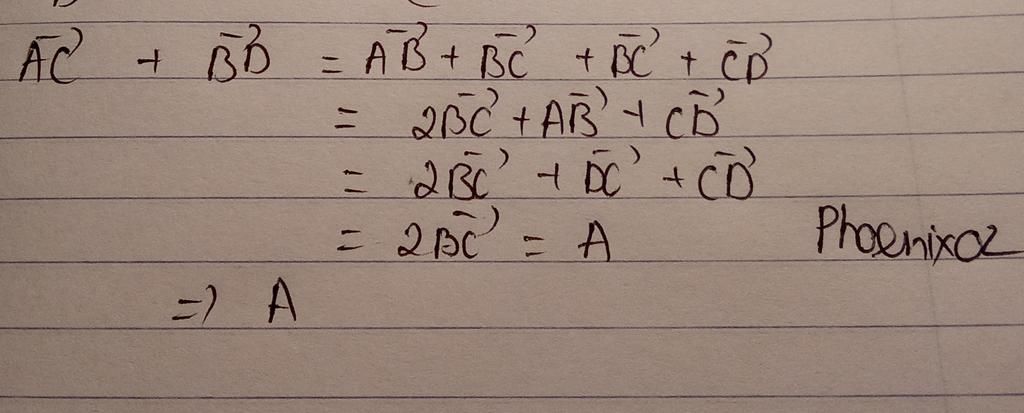 A͞C⃗ + B͞D⃗ = A͞B⃗ + B͞C⃗ + B͞C⃗ + C͞D⃗
= 2B͞C⃗ + A͞B⃗ + C͞D⃗
= 2B͞C⃗ + D͞C⃗ + C͞D⃗
= 2B͞C⃗ = A
Phoenixoz
=> A